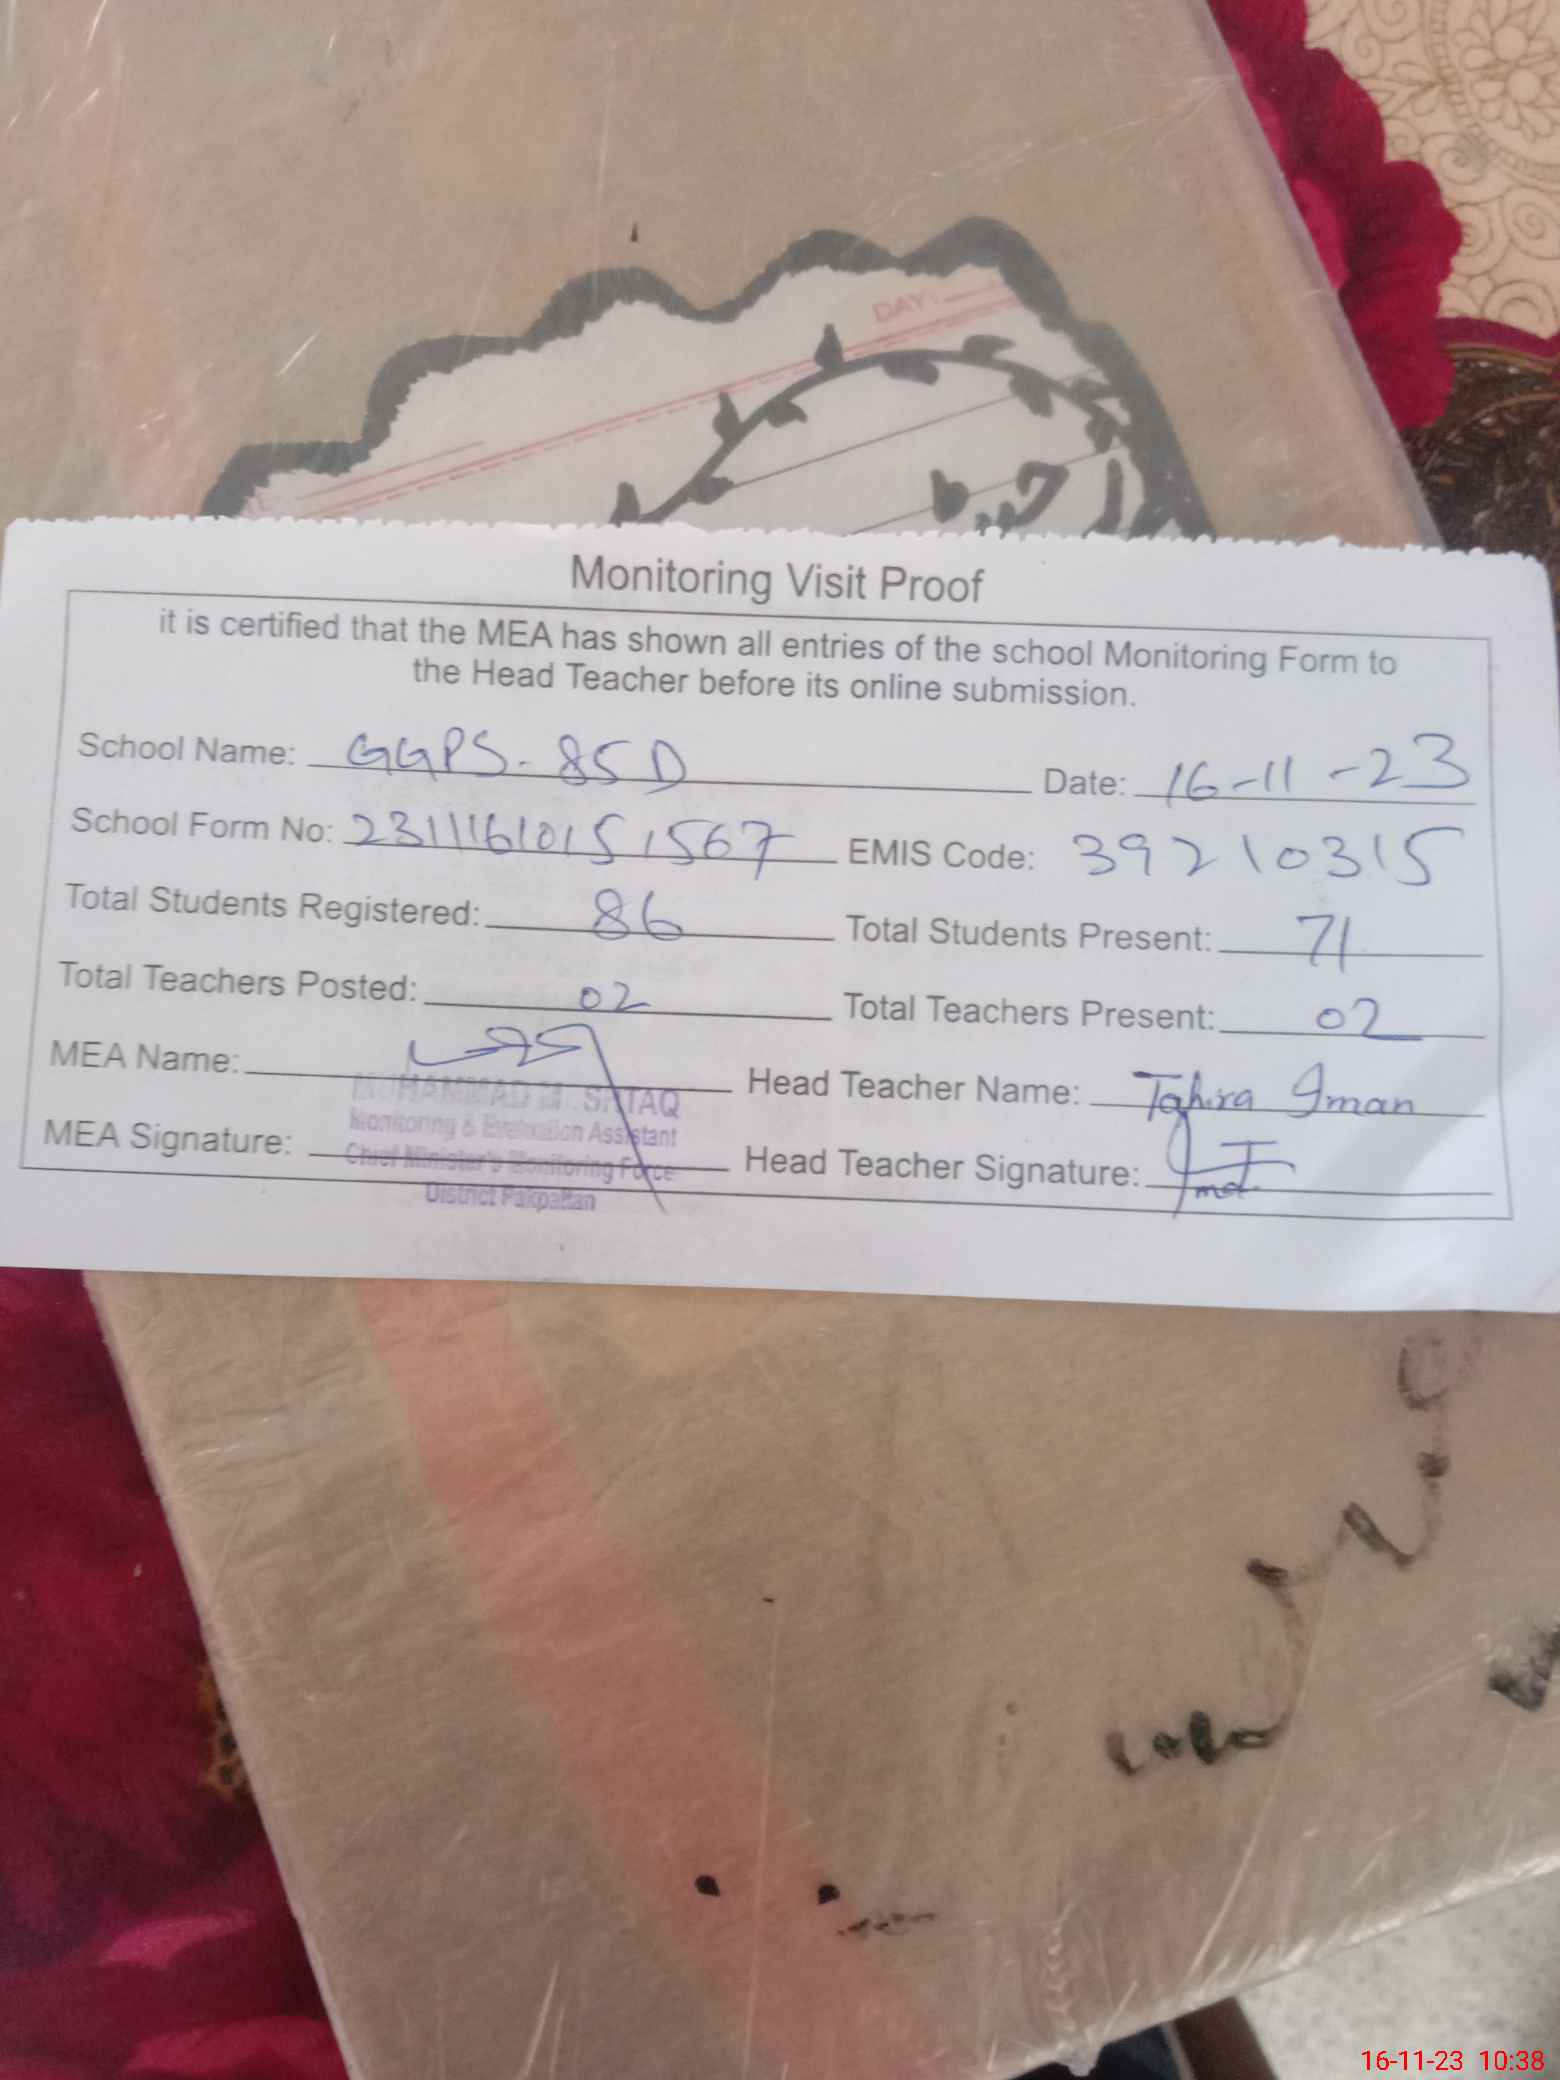 DAY:
Monitoring Visit Proof
it is certified that the MEA has shown all entries of the school Monitoring Form to
the Head Teacher before its online submission.
School Name: GGPS-85D Date: 16-11-23
School Form No: 23111610151567 EMIS Code: 39210315
Total Students Registered: 86 Total Students Present: 71
Total Teachers Posted: 02 Total Teachers Present: 02
MEA Name: Head Teacher Name: Tahira Iman
MUHAMMAD MUSHTAQ
Monitoring & Evaluation Assistant
MEA Signature: Head Teacher Signature:
Chief Minister's Monitoring Force
District Pakpattan
16-11-23 10:38